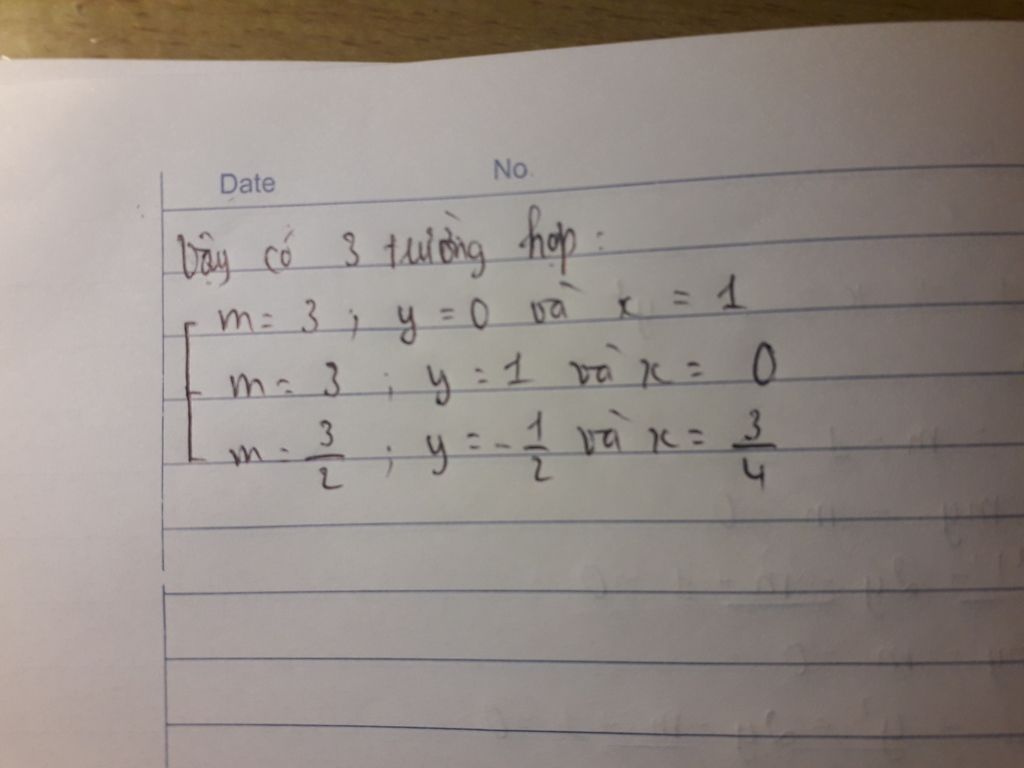 Date No.
Vậy có 3 trường hợp:
m = 3 ; y = 0 và x = 1
m = 3 ; y = 1 và x = 0
m = 3/2 ; y = - 1/2 và x = 3/4